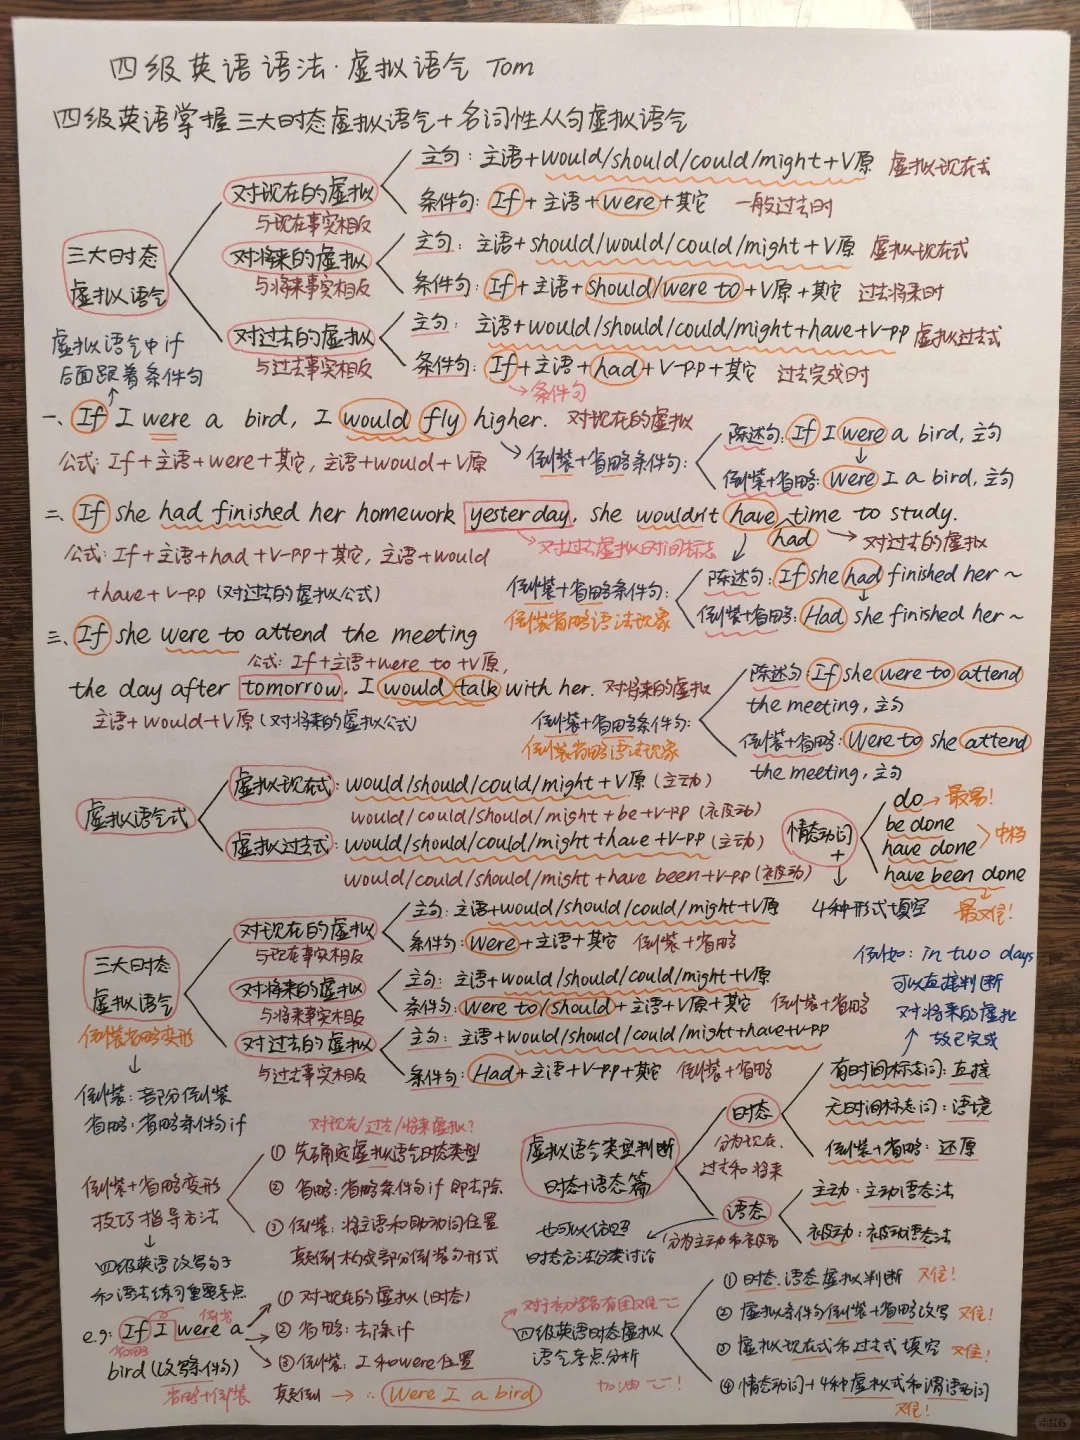 四级英语语法·虚拟语气 Tom
四级英语掌握三大时态虚拟语气+名词性从句虚拟语气
三大时态
虚拟语气
对现在的虚拟
与现在事实相反
主句: 主语+would/should/could/might+V原 虚拟现在式
条件句: If+主语+were+其它 一般过去时
对将来的虚拟
与将来事实相反
主句: 主语+should/would/could/might+V原 虚拟现在式
条件句: If+主语+should/were to+V原+其它 过去将来时
对过去的虚拟
与过去事实相反
主句: 主语+would/should/could/might+have+V-pp 虚拟过去式
条件句: If+主语+had+V-pp+其它 过去完成时
虚拟语气中if
后面跟着条件句
条件句
一、If I were a bird, I would fly higher. 对现在的虚拟
公式: If+主语+were+其它, 主语+would+V原
倒装+省略条件句:
陈述句: If I were a bird, 主句
倒装+省略: Were I a bird, 主句
二、If she had finished her homework yesterday, she wouldn't have time to study.
had
对过去虚拟时间标志
对过去的虚拟
公式: If+主语+had+V-pp+其它, 主语+would
+have+V-pp (对过去的虚拟公式)
倒装+省略条件句:
倒装省略语法现象
陈述句: If she had finished her ~
倒装+省略: Had she finished her ~
三、If she were to attend the meeting
公式: If+主语+were to+V原,
the day after tomorrow, I would talk with her. 对将来的虚拟
主语+would+V原 (对将来的虚拟公式)
倒装+省略条件句:
倒装省略语法现象
陈述句: If she were to attend
the meeting, 主句
倒装+省略: Were to she attend
the meeting, 主句
虚拟语气式
虚拟现在式: would/should/could/might+V原 (主动)
would/could/should/might+be+V-pp (被动)
虚拟过去式: would/should/could/might+have+V-pp (主动)
would/could/should/might+have been+V-pp (被动)
情态动词
+
do → 最易!
be done
have done
中档
have been done
最难!
4种形式填空
三大时态
虚拟语气
倒装省略变形
对现在的虚拟
与现在事实相反
主句: 主语+would/should/could/might+V原
条件句: Were+主语+其它 倒装+省略
对将来的虚拟
与将来事实相反
主句: 主语+would/should/could/might+V原
条件句: Were to/should+主语+V原+其它 倒装+省略
对过去的虚拟
与过去事实相反
主句: 主语+would/should/could/might+have+V-pp
条件句: Had+主语+V-pp+其它 倒装+省略
例如: in two days
可以直接判断
对将来的虚拟
故已完成
倒装: 部分倒装
省略: 省略条件句if
对现在/过去/将来虚拟?
倒装+省略变形
技巧指导方法
① 先确定虚拟语气时态类型
② 省略: 省略条件句if即去除
③ 倒装: 将主语和助动词位置
颠倒构成部分倒装句形式
四级英语改写句子
和语法练习重要考点
虚拟语气类型判断
时态+语态篇
时态
分为现在、
过去和将来
有时间标志词: 直接
无时间标志词: 语境
倒装+省略: 还原
语态
分为主动和被动
主动: 主动语态法
被动: 被动语态法
也可以依照
时态方法分类讨论
倒装
e.g: If I were a
省略
bird (改写条件句)
省略+倒装
① 对现在的虚拟 (时态)
② 省略: 去除if
③ 倒装: I和were位置
颠倒 → ∴ Were I a bird
对于初学者有困难
四级英语时态虚拟
语法考点分析
加油!
① 时态、语态虚拟判断 难!
② 虚拟条件句倒装+省略改写 难!
③ 虚拟现在式和过去式填空 难!
④ 情态动词+4种虚拟式和谓语动词
难!
小红书